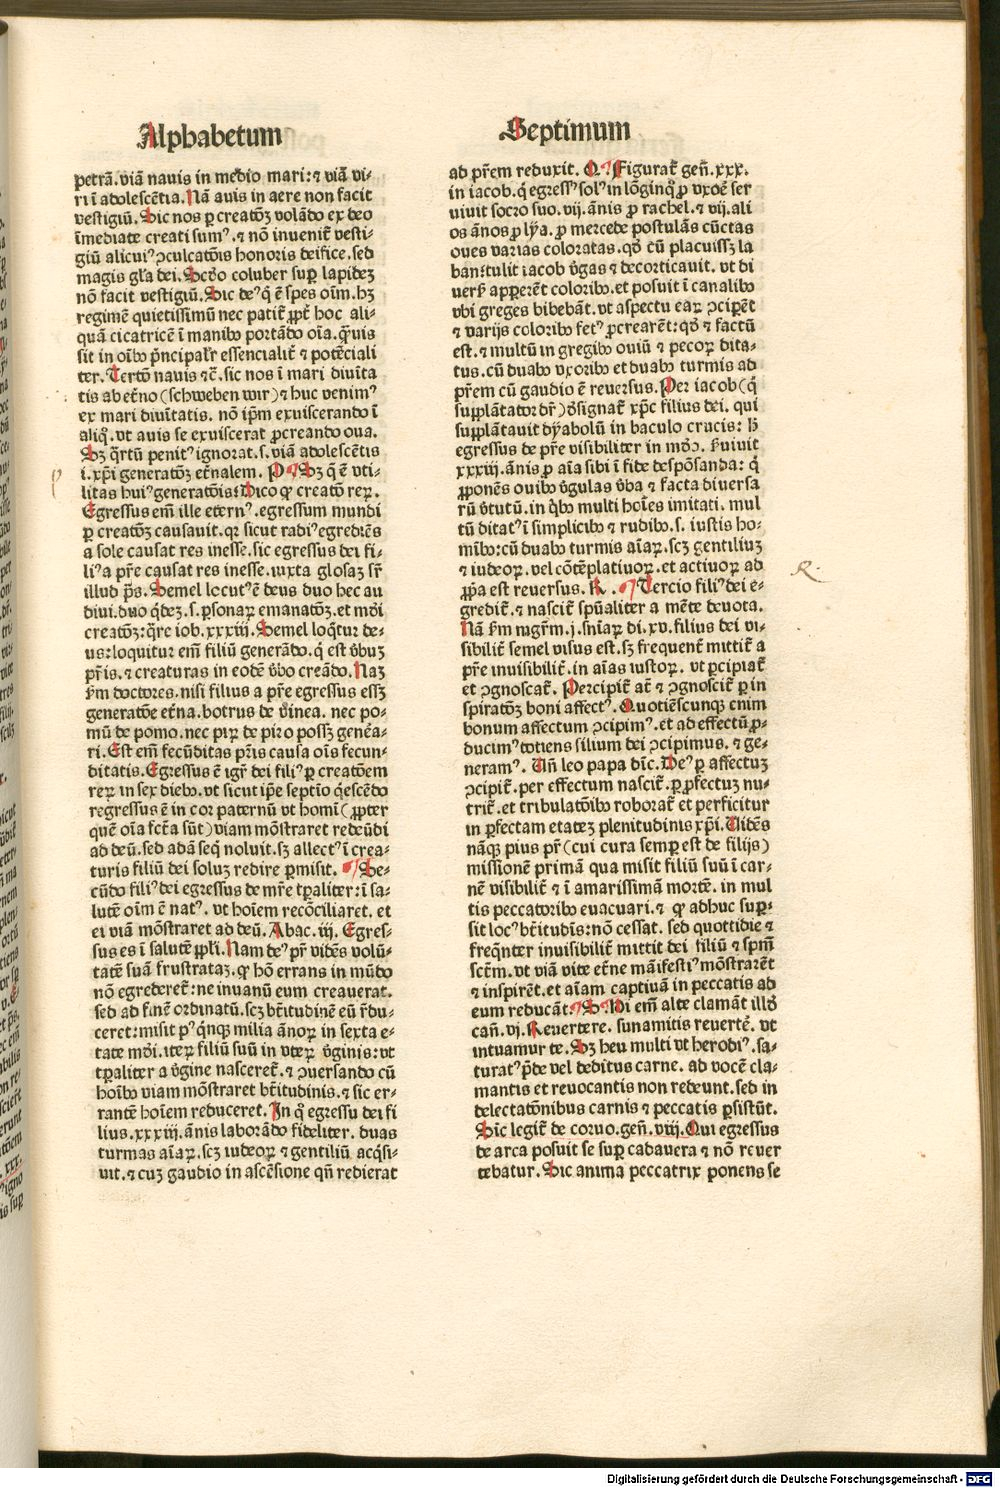 Alphabetum
petrā. viā nauis in medio mari: ⁊ viā vi⸗
ri ī adolescētia. Nā auis in aere non facit
vestigiū. Sic nos ꝑ creatōꝫ volādo ex deo
īmediate creati sumꝰ. ⁊ nō inuenit̄ vesti⸗
giū alicuiꝰ ꝯculcatōis honoris deifice. sed
magis gl̄a dei. Scd̓o coluber suꝑ lapideꝫ
nō facit vestigiū. Sic deꝰ q̇ ē spes oīm. hꝫ
regimē quietissimū nec patit̄ ꝓpt̄ hoc ali⸗
quā cicatricē ī manibꝰ portādo oīa. q̄uis
sit in oībꝰ pn̄cipalr̄ essencialit̄ ⁊ potēciali
ter. Tertō nauis ⁊c̄. sic nos ī mari diuīta
tis ab et̄no (schweben wir) ⁊ huc venimꝰ
ex mari diuītatis. nō ip̄m exuiscerando ī
aliq̊. vt auis se exuiscerat ꝓcreando oua.
Sꝫ q̄rtū penitꝰ ignorat. s. viā adolescētis
.i. xp̄i generatōꝫ et̄nalem. P Sꝫ q̇ ē vti⸗
litas huiꝰ generatōis? Dico ꝙ creatō reꝝ.
Egressus em̄ ille eternꝰ. egressum mundi
ꝑ creatōꝫ causauit. qꝛ sicut radiꝰ egrediēs
a sole causat res inesse. sic egressus dei fi⸗
liꝰ a pr̄e causat res inesse. iuxta glosaꝫ sr̄
illud p̄s. Semel locutꝰ ē deus duo hec au
diui. duo q̇dez. s. ꝑsonaꝝ emanatōꝫ. et mūi
creatōꝫ: q̄re iob. xxxiij. Semel loq̄tur de⸗
us: loquitur em̄ filiū generādo. q̇ est v̓buꝫ
pr̄is. ⁊ creaturas in eodē v̓bo creādo. Naꝫ
km̄ doctores. nisi filius a pr̄e egressus essꝫ
generatōe et̄na. botrus de v̓inea. nec po⸗
mū de pomo. nec piꝝ de piro possꝫ genēa⸗
ri. Est em̄ fecūditas pr̄is causa oīs fecun⸗
ditatis. Egressus ē igr̄ dei filiꝰ ꝑ creatōem
reꝝ in sex diebꝰ. vt sicut ip̄e septīo q̇escēdo
regressus ē in cor paternū vt homī (ꝓpter
quē oīa fct̄a sūt) viam mōstraret redeūdi
ad deū. sed adā seq̇ noluit. sꝫ allectꝰ ī crea⸗
turis filiū dei soluꝫ redire ꝑmisit. Se⸗
cūdo filiꝰ dei egressus de mr̄e tꝑaliter: ī sa⸗
lutē oīm ē natꝰ. vt hoīem recōciliaret. et
ei viā mōstraret ad deū. Abac. iij. Egres⸗
sus es ī salutē ppl̄i. Nam deꝰ pr̄ vidēs volū⸗
tatē suā frustrataꝫ. ꝙ hō errans in mūdo
nō egrederet̄: ne inuanū eum creauerat.
sed ad finē ordinatū. scꝫ bt̄itudinē eū r̄du⸗
ceret: misit pꝰ q̇nqꝫ milia ānoꝝ in sexta e⸗
tate mūi. iteꝝ filiū suū in vteꝝ v̓ginis: vt
tꝑaliter a v̓gine nasceret̄. ⁊ ꝯuersando cū
hoībꝰ viam mōstraret bt̄itudinis. ⁊ sic er⸗
rantē hoīem reduceret. In q̊ egressu dei fi
lius. xxxiij. ānis laborādo fideliter. duas
turmas aīaꝝ. scꝫ iudeoꝝ ⁊ gentiliū acq̇si⸗
uit. ⁊ cuꝫ gaudio in ascēsione qn̄ redierat
Septimum
ad pr̄em reduxit. Q Figurat̄ gen̄. xxx.
in iacob. q̇ egressꝰ solꝰ in lōginqꝫ ꝓ vxoē ser
uiuit socro suo. vij. ānis ꝓ rachel. ⁊ vij. ali
os ānos ꝓ lẏa. ꝓ mercede postulās cūctas
oues varias coloratas. qd̓ cū placuissꝫ la
ban: tulit iacob v̓gas ⁊ decorticauit. vt di
uers̄ apꝑerēt coloribꝰ. et posuit ī canalibꝰ
vbi greges bibebāt. vt aspectu eaꝝ ꝯciꝑēt
⁊ varijs coloribꝰ fetꝰ ꝓcrearēt: qd̓ ⁊ factū
est. ⁊ multū in gregibꝰ ouiū ⁊ pecoꝝ dita⸗
tus. cū duabꝰ vxoribꝰ et duabꝰ turmis ad
pr̄em cū gaudio ē reuersus. Per iacob (q̇
supplātator dr̄) d̓signat̄ xp̄c filius dei. qui
supplātauit dẏabolū in baculo crucis: h̄
egressus de pr̄e visibiliter in mūdo. s̄uiuit
xxxiij. ānis ꝑ aīa sibi ī fide despōsanda: q̇
ꝓponēs ouibꝰ v̓gulas v̓ba ⁊ facta diuersa
rū v̓tutū. in q̇bꝰ multi hoīes imitati. mul
tū ditatꝰ ī simplicibꝰ ⁊ rudibꝰ. s. iustis ho⸗
mībꝰ: cū duabꝰ turmis aīaꝝ. scꝫ gentiliuꝫ
⁊ iudeoꝝ. vel cōtēplatiuoꝝ. et actiuoꝝ ad
pp̄a est reuersus. R. Tercio filiꝰ dei e⸗
gredit̄. ⁊ nascit̄ spūaliter a mēte deuota.
Nā km̄ mgr̄m. j. sn̄iaꝝ di. xv. filius dei vi⸗
sibilit̄ semel visus est. sꝫ frequent̄ mittit̄ a
pr̄e inuisibilit̄. in aīas iustoꝝ. vt ꝑcipiat̄
et ꝯgnoscat̄. Percipit̄ at̄ ⁊ ꝯgnoscit̄ ꝑ in
spiratōꝫ boni affectꝰ. Quotiēscunqꝫ enim
bonum affectum ꝯcipimꝰ. et ad effectū ꝓ⸗
ducimꝰ totiens filium dei ꝯcipimus. ⁊ ge⸗
neramꝰ. Un̄ leo papa dīc. Deꝰ ꝑ affectuꝫ
ꝯcipit̄. per effectum nascit̄. ꝑ ꝓfectuꝫ nu⸗
trit̄. et tribulatōibꝰ roborat̄ et perficitur
in ꝑfectam etateꝫ plenitudinis xp̄i. Uidēs
nāqꝫ pius pr̄ (cui cura semꝑ est de filijs)
missionē primā qua misit filiū suū ī car⸗
nē visibilit̄ ⁊ ī amarissimā mortē. in mul
tis peccatoribꝰ euacuari. ⁊ ꝙ adhuc suꝑ⸗
sit locꝰ bt̄itudis: nō cessat. sed quottidie ⁊
freq̄nter inuisibilit̄ mittit dei filiū ⁊ spm̄
scm̄. vt viā vite et̄ne māifestiꝰ mōstrarēt
⁊ inspirēt. et aīam captiuā in peccatis ad
eum reducāt: S Hi em̄ alte clamāt illd̓
can̄. vj. Reuertere. sunamitis reuerte. vt
intuamur te. Sꝫ heu multi vt herodiꝰ. sa⸗
turatꝰ p̄de vel deditus carne. ad vocē cla⸗
mantis et reuocantis non redeunt. sed in
delectatōnibus carnis ⁊ peccatis ꝑsistūt.
Sic legit̄ de coruo. gen̄. viij. Qui egressus
de arca posuit se suꝑ cadauera ⁊ nō reuer
tebatur. Sic anima peccatrix ponens se
R.
Digitalisierung gefördert durch die Deutsche Forschungsgemeinschaft - DFG